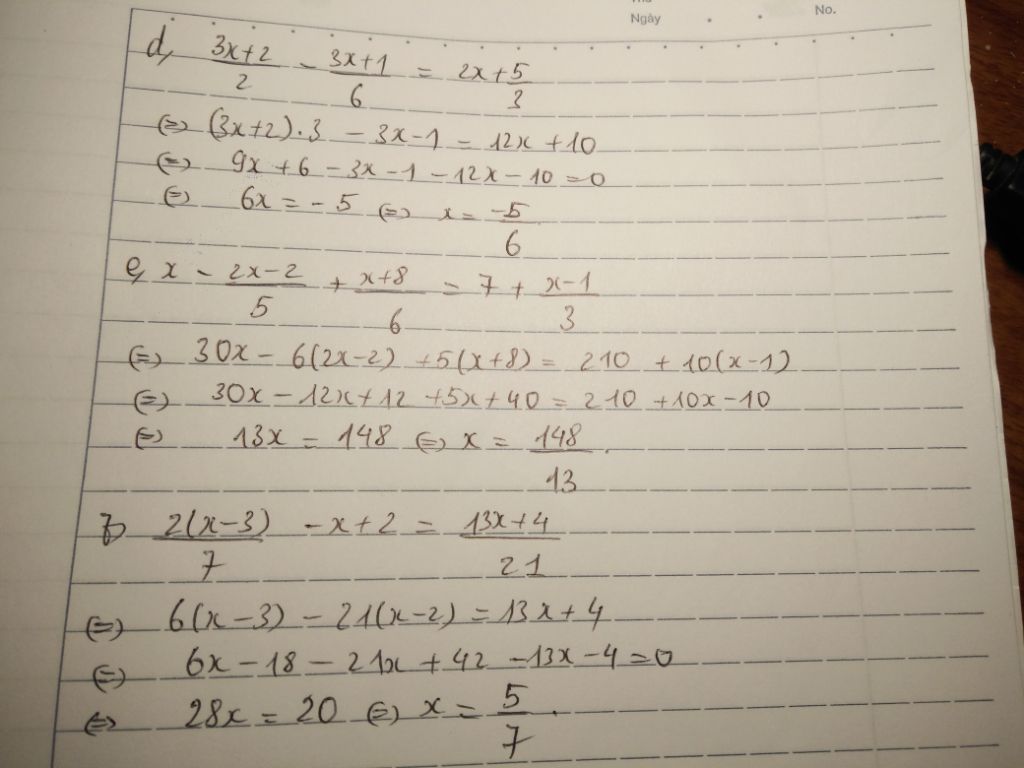 Ngày No.
d, (3x+2)/2 - (3x+1)/6 = 2x + 5/3
(=) (3x+2).3 - 3x-1 = 12x + 10
(=) 9x + 6 - 3x - 1 - 12x - 10 = 0
(=) 6x = -5 (=) x = -5/6
e, x - (2x-2)/5 + (x+8)/6 = 7 + (x-1)/3
(=) 30x - 6(2x-2) + 5(x+8) = 210 + 10(x-1)
(=) 30x - 12x + 12 + 5x + 40 = 210 + 10x - 10
(=) 13x = 148 (=) x = 148/13.
2(x-3)/7 - x + 2 = (13x+4)/21
(=) 6(x-3) - 21(x-2) = 13x + 4
(=) 6x - 18 - 21x + 42 - 13x - 4 = 0
(=) 28x = 20 (=) x = 5/7.